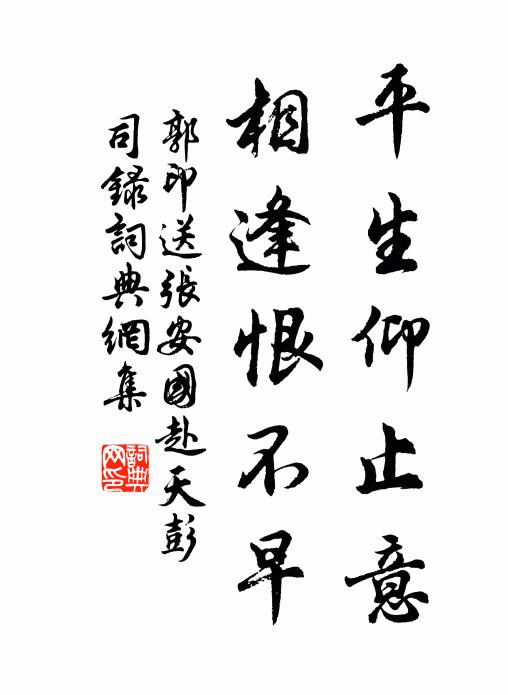 平生仰止意
相逢恨不早
郭印送張安國赴天彭
司錄詞典網集
詞典
网印